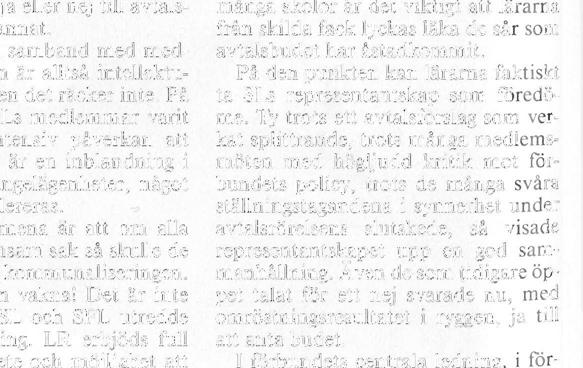 ja eller nej till avtals-
annat.
samband med med-
n är alltså intellektu-
en det räcker inte. På
Ls medlemmar varit
ntensiv påverkan att
är en inblandning i
ngelägenheter, något
lereras.
mena är att om alla
nsam sak så skulle de
kommunaliseringen.
n vakna! Det är inte
SL och SFL utredde
ing. LR erbjöds full
ete och möjlighet att
många skolor är det viktigt att lärarna
från skilda fack lyckas läka de sår som
avtalsbudet har åstadkommit.
På den punkten kan lärarna faktiskt
ta SLs representantskap som föredö-
me. Ty trots ett avtalsförslag som ver-
kat splittrande, trots många medlems-
möten med högljudd kritik mot för-
bundets policy, trots de många svåra
ställningstagandena i synnerhet under
avtalsrörelsens slutskede, så visade
representantskapet upp en god sam-
manhållning. Även de som tidigare öp-
pet talat för ett nej svarade nu, med
omröstningsresultatet i ryggen, ja till
att anta budet.
I förbundets centrala ledning, i för-